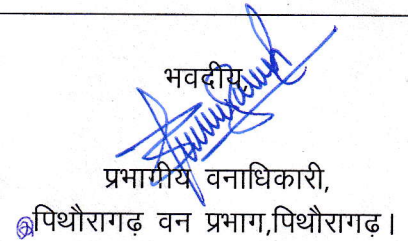 भवदीय,
प्रभागीय वनाधिकारी,
पिथौरागढ़ वन प्रभाग,पिथौरागढ़।